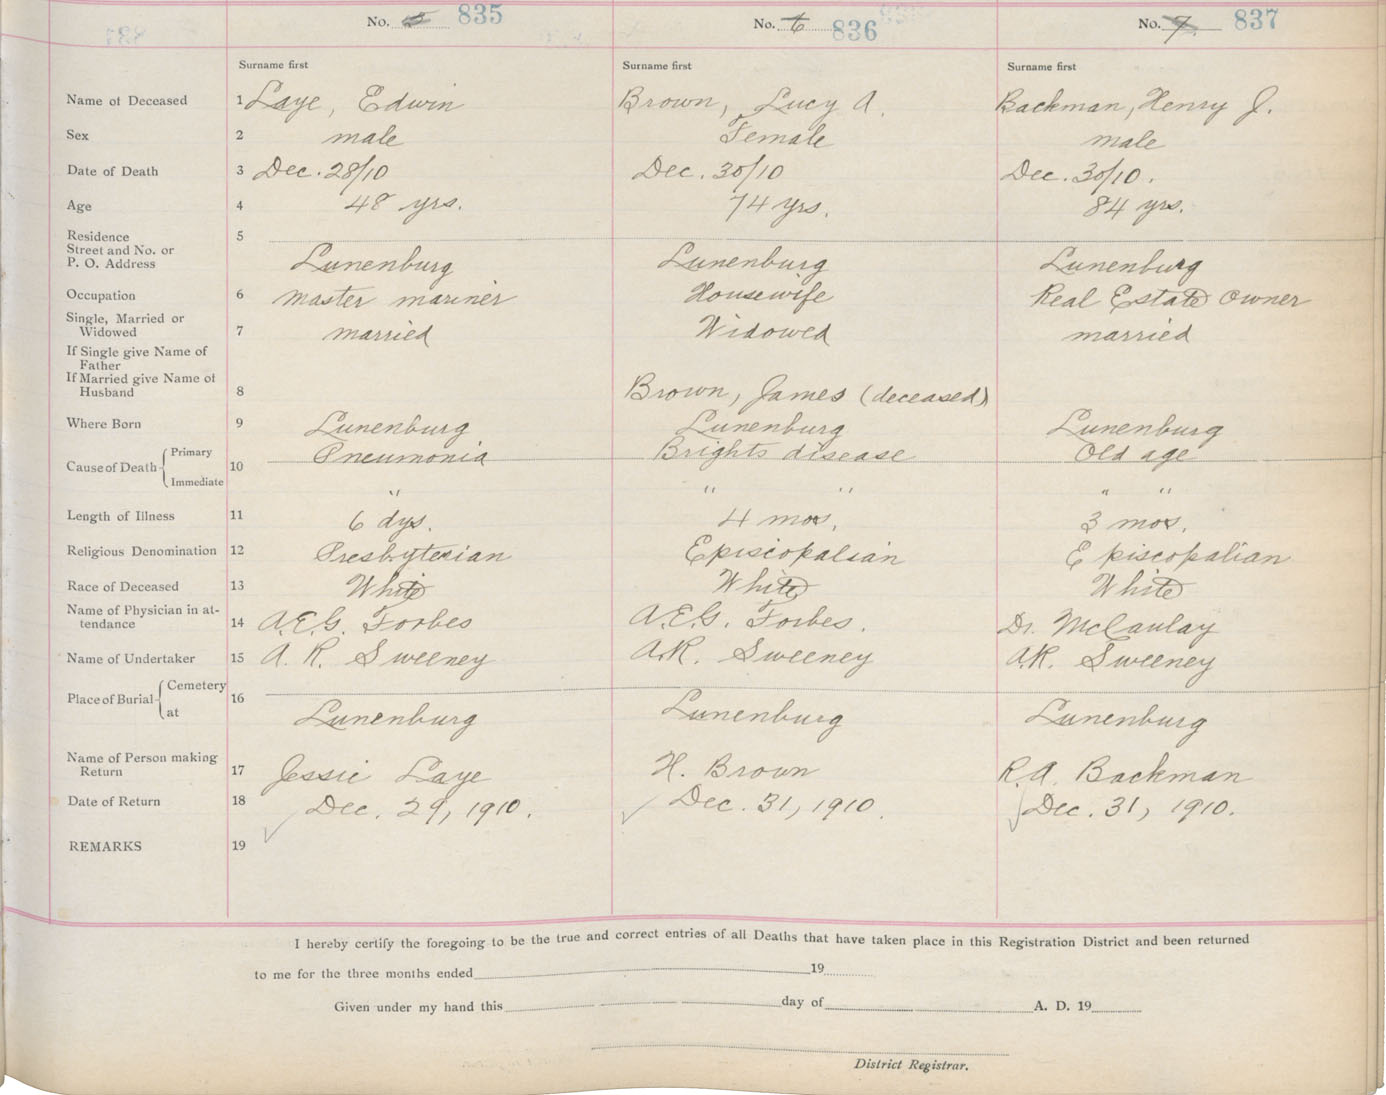 No. 5 835 No. 6 836 No. 7 837
Surname first Surname first Surname first
Name of Deceased 1 Laye, Edwin Brown, Lucy A. Backman, Henry J.
Sex 2 male Female male
Date of Death 3 Dec. 28/10 Dec. 30/10 Dec. 30/10.
Age 4 48 yrs. 74 yrs. 84 yrs.
Residence 5
Street and No. or
P. O. Address Lunenburg Lunenburg Lunenburg
Occupation 6 master mariner Housewife Real Estate Owner
Single, Married or
Widowed 7 married Widowed married
If Single give Name of
Father
If Married give Name of
Husband 8 Brown, James (deceased)
Where Born 9 Lunenburg Lunenburg Lunenburg
Cause of Death Primary 10 Pneumonia Brights disease Old age
Immediate " " " " "
Length of Illness 11 6 dys. 4 mos. 3 mos.
Religious Denomination 12 Presbyterian Episcopalian Episcopalian
Race of Deceased 13 White White White
Name of Physician in at-
tendance 14 A.E.G. Forbes A.E.G. Forbes. Dr. McCaulay
Name of Undertaker 15 A. R. Sweeney A.R. Sweeney A.R. Sweeney
Place of Burial Cemetery 16
at Lunenburg Lunenburg Lunenburg
Name of Person making
Return 17 Jessie Laye H. Brown R.A. Backman
Date of Return 18 Dec. 29, 1910. Dec. 31, 1910. Dec. 31, 1910.
REMARKS 19
I hereby certify the foregoing to be the true and correct entries of all Deaths that have taken place in this Registration District and been returned
to me for the three months ended 19
Given under my hand this day of A. D. 19
District Registrar.